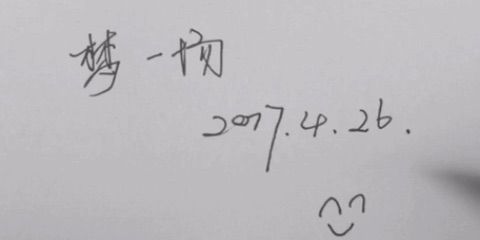 梦一场
2017.4.26.